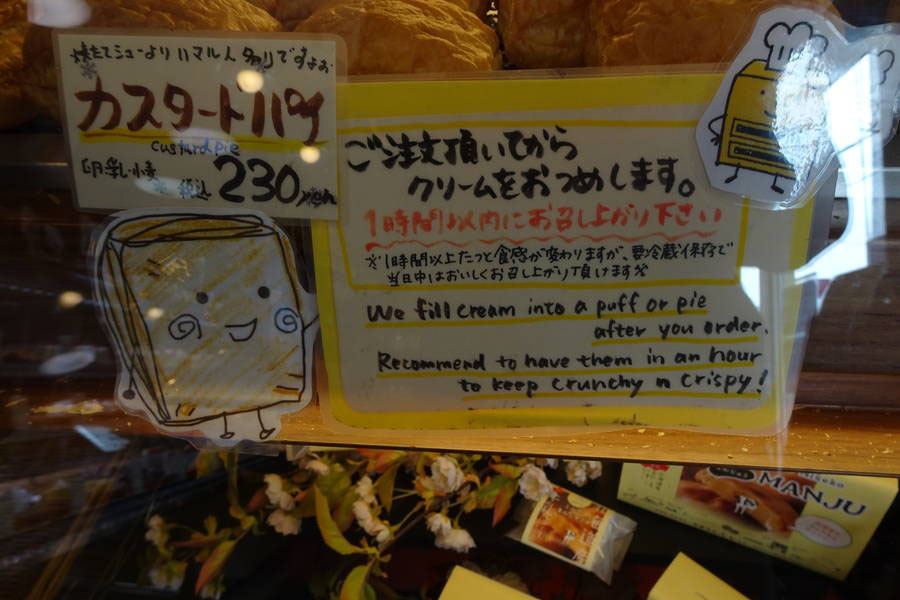 焼たてシューよりハマル人多りですよお
カスタードパイ
custard pie
卵乳小麦
税込 230yen
ご注文頂いてから
クリームをおつめします。
1時間以内にお召し上がり下さい
※1時間以上たつと食感が変わりますが、要冷蔵保存で
当日中はおいしくお召し上がり頂けます※
We fill cream into a puff or pie
after you order.
Recommend to have them in an hour
to keep crunchy n crispy!
MANJU